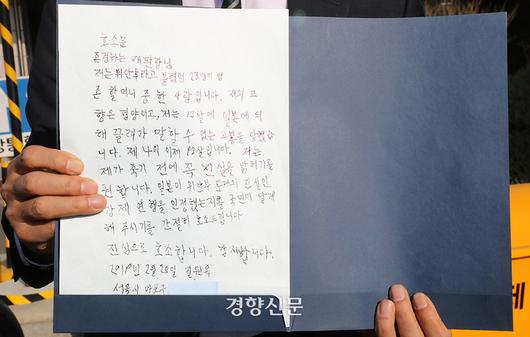 호소문
존경하는 재판장님
저는 위안부라고 불렸던 23명의 생
존 할머니 중 한 사람입니다. 저의 고
향은 평양이고, 저는 13살에 일본에 의
해 끌려가 말할 수 없는 고통을 당했습
니다. 제 나이 이제 92살입니다. 저는
제가 죽기 전에 꼭 진실을 밝히기를
원합니다. 일본이 위안부 문제의 진실인
강제 연행을 인정했는지를 국민이 알게
해 주시기를 간절히 호소드립니다
진심으로 호소합니다. 감사합니다.
2019년 2월 28일 길원옥
서울시 마포구
경향신문